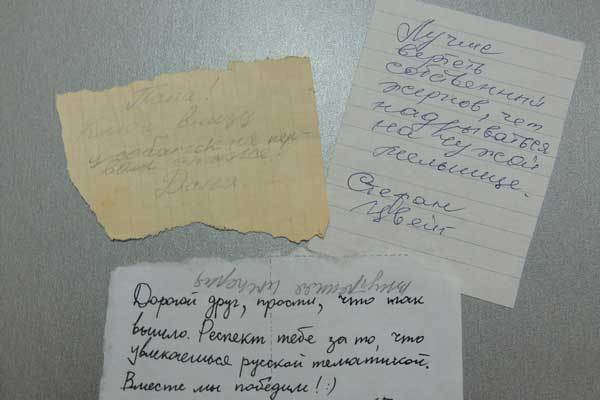 Папа!
внизу
Даня.
Лучше
вертеть
собственный
жернов, чем
надрываться
на чужой
мельнице.
Стефан
Цвейг
Дорогой друг, прости, что так
вышло. Респект тебе за то, что
увлекаешься русской тематикой.
Вместе мы победим! :)